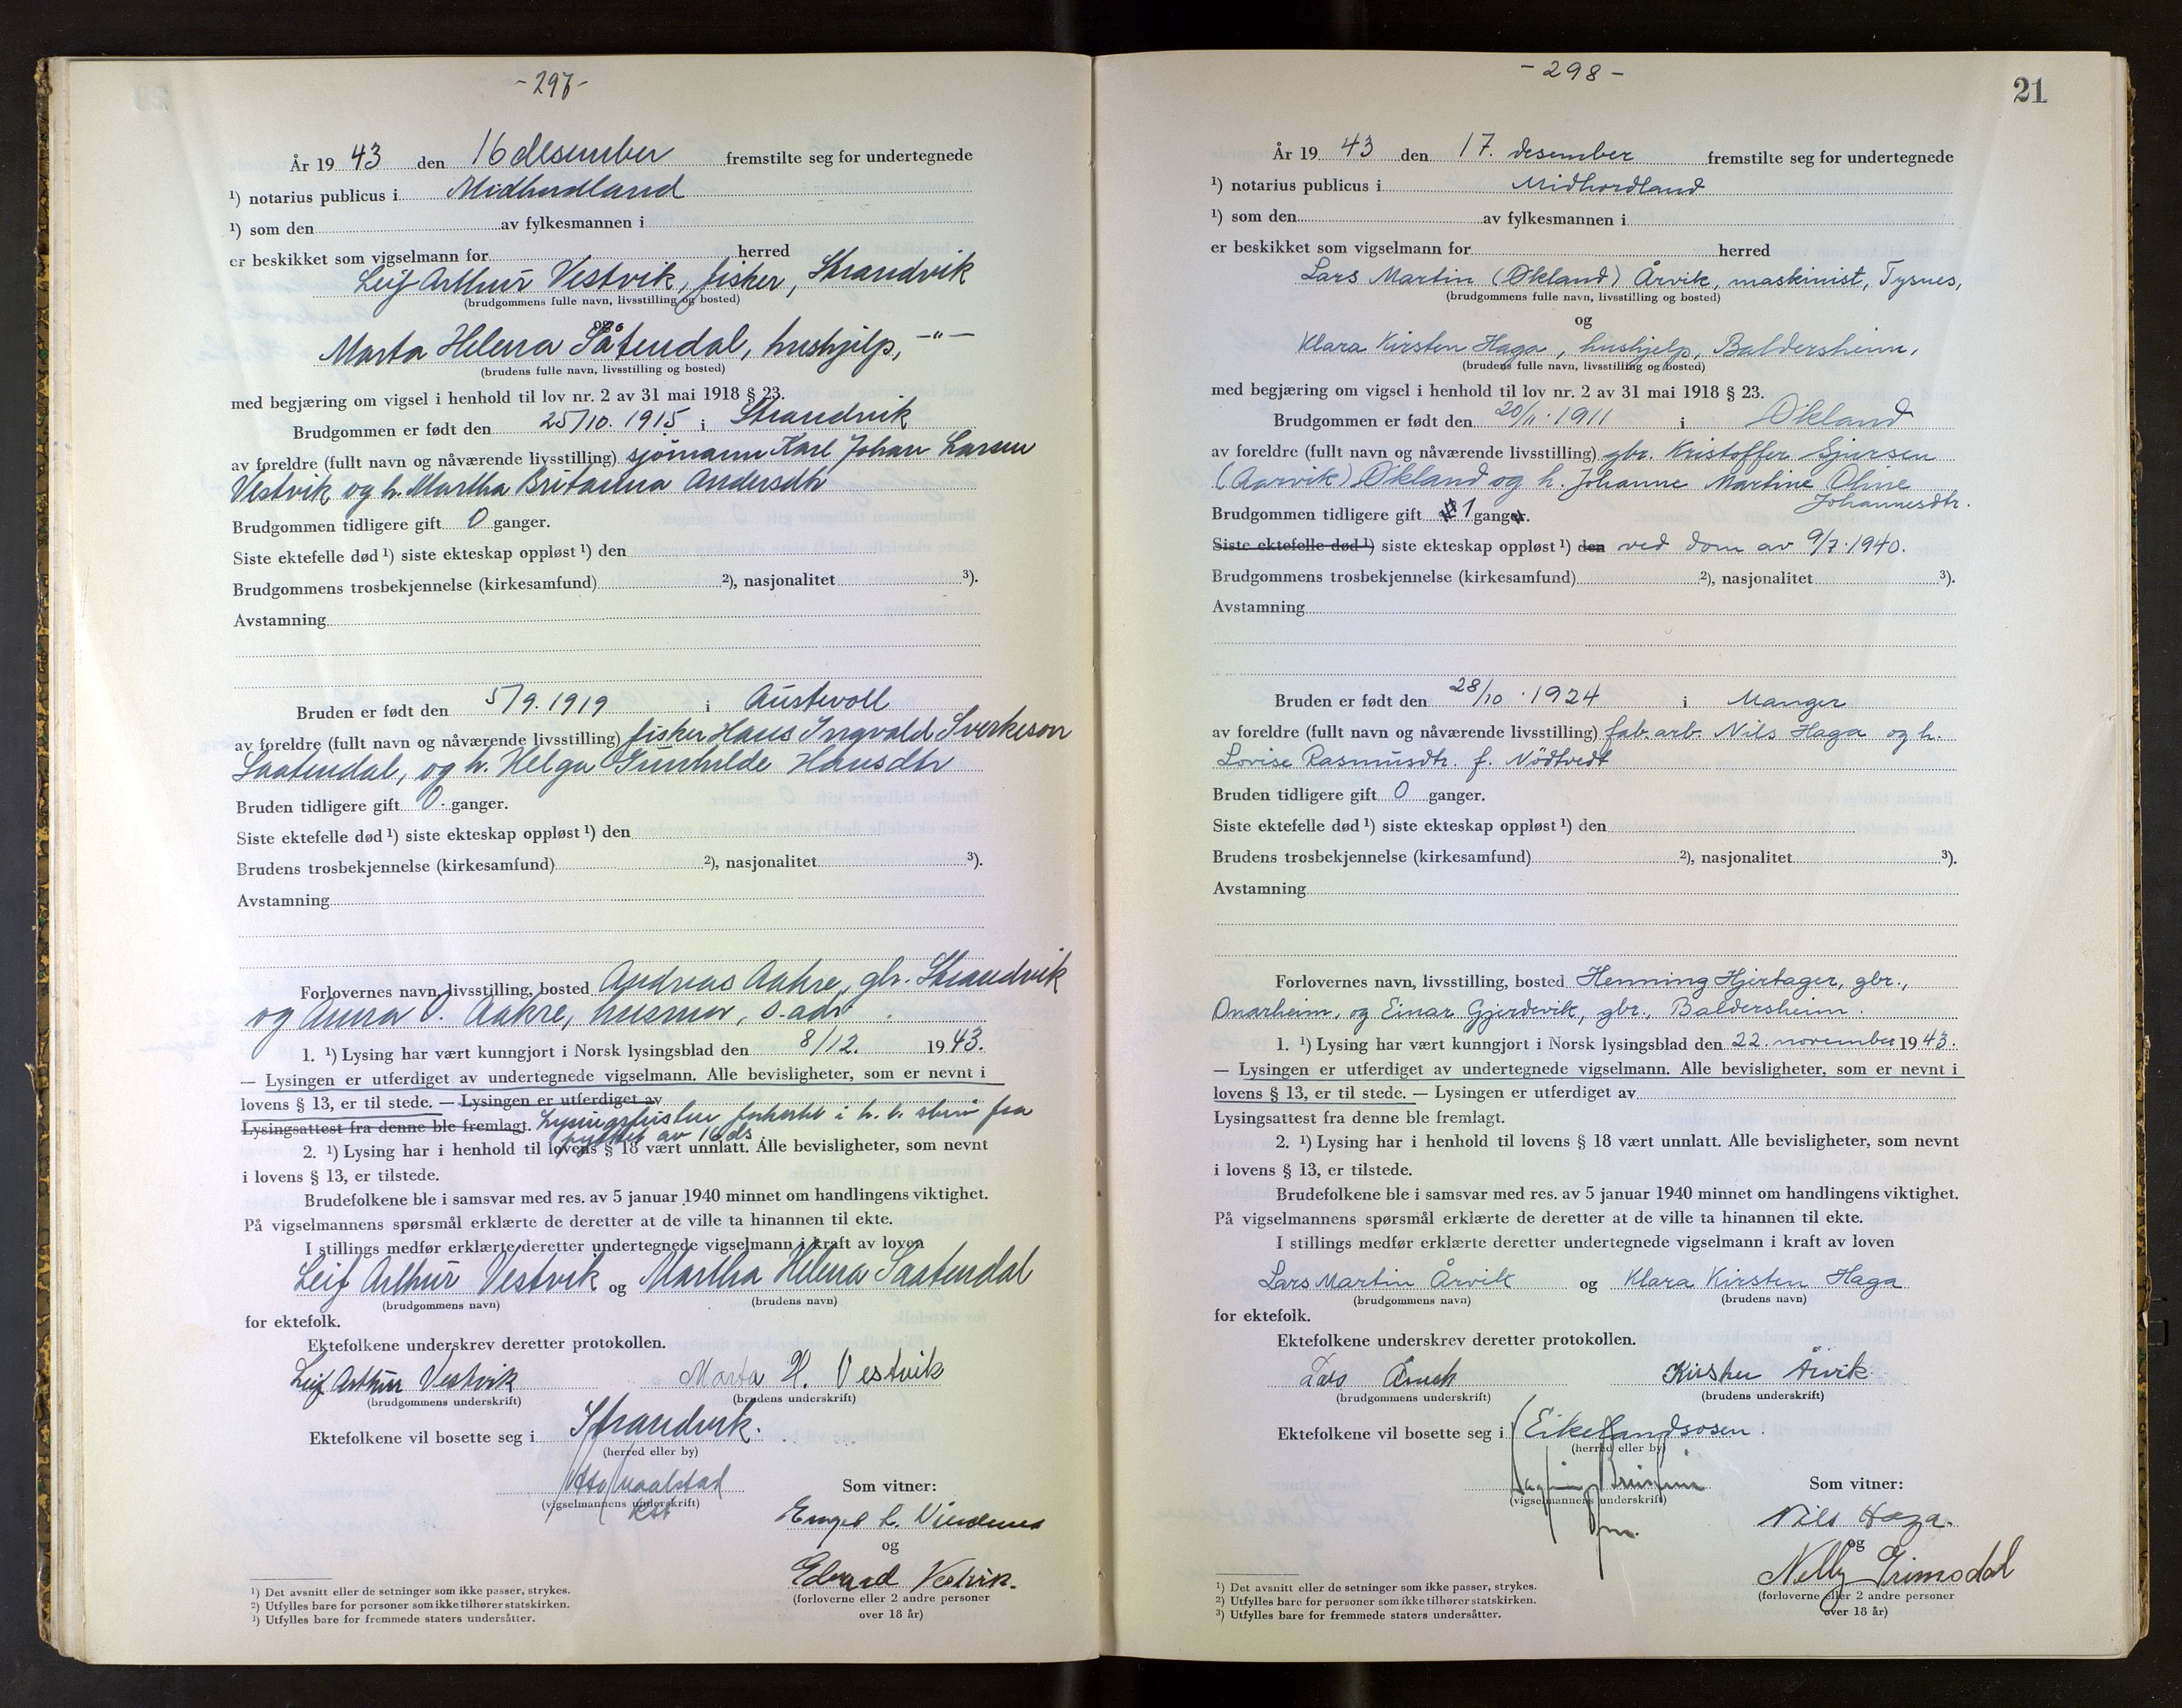 - 297 -
År 19 43 den 16 desember fremstilte seg for undertegnede
¹) notarius publicus i Midhordland
¹) som den av fylkesmannen i
er beskikket som vigselmann for herred
Leif Arthur Vestvik, fisker, Strandvik
(brudgommens fulle navn, livsstilling og bosted)
og
Marta Helena Såtendal, hushjelp, -"-
(brudens fulle navn, livsstilling og bosted)
med begjæring om vigsel i henhold til lov nr. 2 av 31 mai 1918 § 23.
Brudgommen er født den 25/10. 1915 i Strandvik
av foreldre (fullt navn og nåværende livsstilling) sjømann Karl Johan Larsen
Vestvik og h. Martha Britanna Andersdtr
Brudgommen tidligere gift 0 ganger.
Siste ektefelle død ¹) siste ekteskap oppløst ¹) den
Brudgommens trosbekjennelse (kirkesamfund) ²), nasjonalitet ³).
Avstamning
Bruden er født den 5/9. 1919 i Austevoll
av foreldre (fullt navn og nåværende livsstilling) fisker Hans Ingvald Sverkeson
Saatendal, og h. Helga Gunhilde Hansdtr
Bruden tidligere gift 0. ganger.
Siste ektefelle død ¹) siste ekteskap oppløst ¹) den
Brudens trosbekjennelse (kirkesamfund) ²), nasjonalitet ³).
Avstamning
Forlovernes navn, livsstilling, bosted Andreas Aakre, gbr. Strandvik
og Anna O. Aakre, husmor, s. adr.
1. ¹) Lysing har vært kunngjort i Norsk lysingsblad den 8/12. 1943.
— Lysingen er utferdiget av undertegnede vigselmann. Alle bevisligheter, som er nevnt i
lovens § 13, er til stede. — Lysingen er utferdiget av
Lysingsattest fra denne ble fremlagt. Lysingsfristen forkortet i h. t. skriv fra
av 16 ds
2. ¹) Lysing har i henhold til lovens § 18 vært unnlatt. Alle bevisligheter, som nevnt
i lovens § 13, er tilstede.
Brudefolkene ble i samsvar med res. av 5 januar 1940 minnet om handlingens viktighet.
På vigselmannens spørsmål erklærte de deretter at de ville ta hinannen til ekte.
I stillings medfør erklærte deretter undertegnede vigselmann i kraft av loven
Leif Arthur Vestvik og Martha Helena Saatendal
(brudgommens navn) (brudens navn)
for ektefolk.
Ektefolkene underskrev deretter protokollen.
Leif Arthur Vestvik Marta H. Vestvik
(brudgommens underskrift) (brudens underskrift)
Ektefolkene vil bosette seg i Strandvik.
(herred eller by)
(vigselmannens underskrift)
Som vitner:
Engel L. Vindenes
og
Edvard Vestvik.
(forloverne eller 2 andre personer
over 18 år)
¹) Det avsnitt eller de setninger som ikke passer, strykes.
²) Utfylles bare for personer som ikke tilhører statskirken.
³) Utfylles bare for fremmede staters undersåtter.
- 298 -
21
År 19 43 den 17. desember fremstilte seg for undertegnede
¹) notarius publicus i Midhordland
¹) som den av fylkesmannen i
er beskikket som vigselmann for herred
Lars Martin (Økland) Årvik, maskinist, Tysnes,
(brudgommens fulle navn, livsstilling og bosted)
og
Klara Kirsten Haga, hushjelp, Baldersheim,
(brudens fulle navn, livsstilling og bosted)
med begjæring om vigsel i henhold til lov nr. 2 av 31 mai 1918 § 23.
Brudgommen er født den 20/11. 1911 i Økland
av foreldre (fullt navn og nåværende livsstilling) gbr. Kristoffer Sjursen
(Aarvik) Økland og h. Johanne Martine Oline
Johannesdtr.
Brudgommen tidligere gift 1 ganger.
Siste ektefelle død ¹) siste ekteskap oppløst ¹) den ved dom av 9/7. 1940.
Brudgommens trosbekjennelse (kirkesamfund) ²), nasjonalitet ³).
Avstamning
Bruden er født den 28/10. 1924 i Manger
av foreldre (fullt navn og nåværende livsstilling) fab. arb. Nils Haga og h.
Lovise Rasmusdtr. f. Nödtvedt
Bruden tidligere gift 0 ganger.
Siste ektefelle død ¹) siste ekteskap oppløst ¹) den
Brudens trosbekjennelse (kirkesamfund) ²), nasjonalitet ³).
Avstamning
Forlovernes navn, livsstilling, bosted Henning Hjertager, gbr.,
Onarheim, og Einar Gjerdevik, gbr., Baldersheim.
1. ¹) Lysing har vært kunngjort i Norsk lysingsblad den 22. november 1943.
— Lysingen er utferdiget av undertegnede vigselmann. Alle bevisligheter, som er nevnt i
lovens § 13, er til stede. — Lysingen er utferdiget av
Lysingsattest fra denne ble fremlagt.
2. ¹) Lysing har i henhold til lovens § 18 vært unnlatt. Alle bevisligheter, som nevnt
i lovens § 13, er tilstede.
Brudefolkene ble i samsvar med res. av 5 januar 1940 minnet om handlingens viktighet.
På vigselmannens spørsmål erklærte de deretter at de ville ta hinannen til ekte.
I stillings medfør erklærte deretter undertegnede vigselmann i kraft av loven
Lars Martin Årvik og Klara Kirsten Haga
(brudgommens navn) (brudens navn)
for ektefolk.
Ektefolkene underskrev deretter protokollen.
Lars Årvik Kirsten Årvik
(brudgommens underskrift) (brudens underskrift)
Ektefolkene vil bosette seg i Eikelandsosen.
(herred eller by)
(vigselmannens underskrift)
Som vitner:
Nils Haga.
og
Nelly Grimsdal
(forloverne eller 2 andre personer
over 18 år)
¹) Det avsnitt eller de setninger som ikke passer, strykes.
²) Utfylles bare for personer som ikke tilhører statskirken.
³) Utfylles bare for fremmede staters undersåtter.